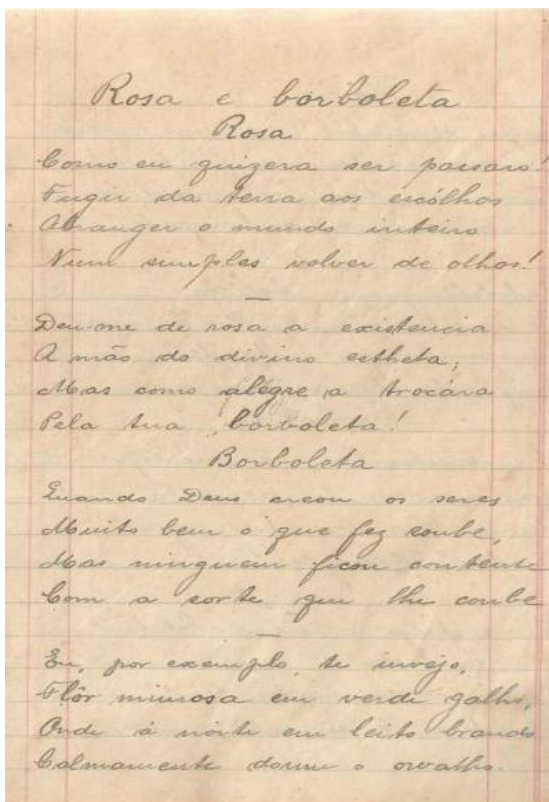 Rosa e borboleta
Rosa
Como eu quizera ser passaro!
Fugir da terra aos escólhos
Abranger o mundo inteiro
Num simples volver de olhos!
Deu-me de rosa a existencia
A mão do divino estheta,
Mas como alégre a trocára
Pela tua, borboleta!
Borboleta
Quando Deus creou os seres
Muito bem o que fez soube,
Mas ninguem ficou contente
Com a sorte que lhe coube
Eu, por exemplo, te invejo,
Flôr mimosa em verde galho,
Onde á noite em leito brando
Calmamente dorme o orvalho.